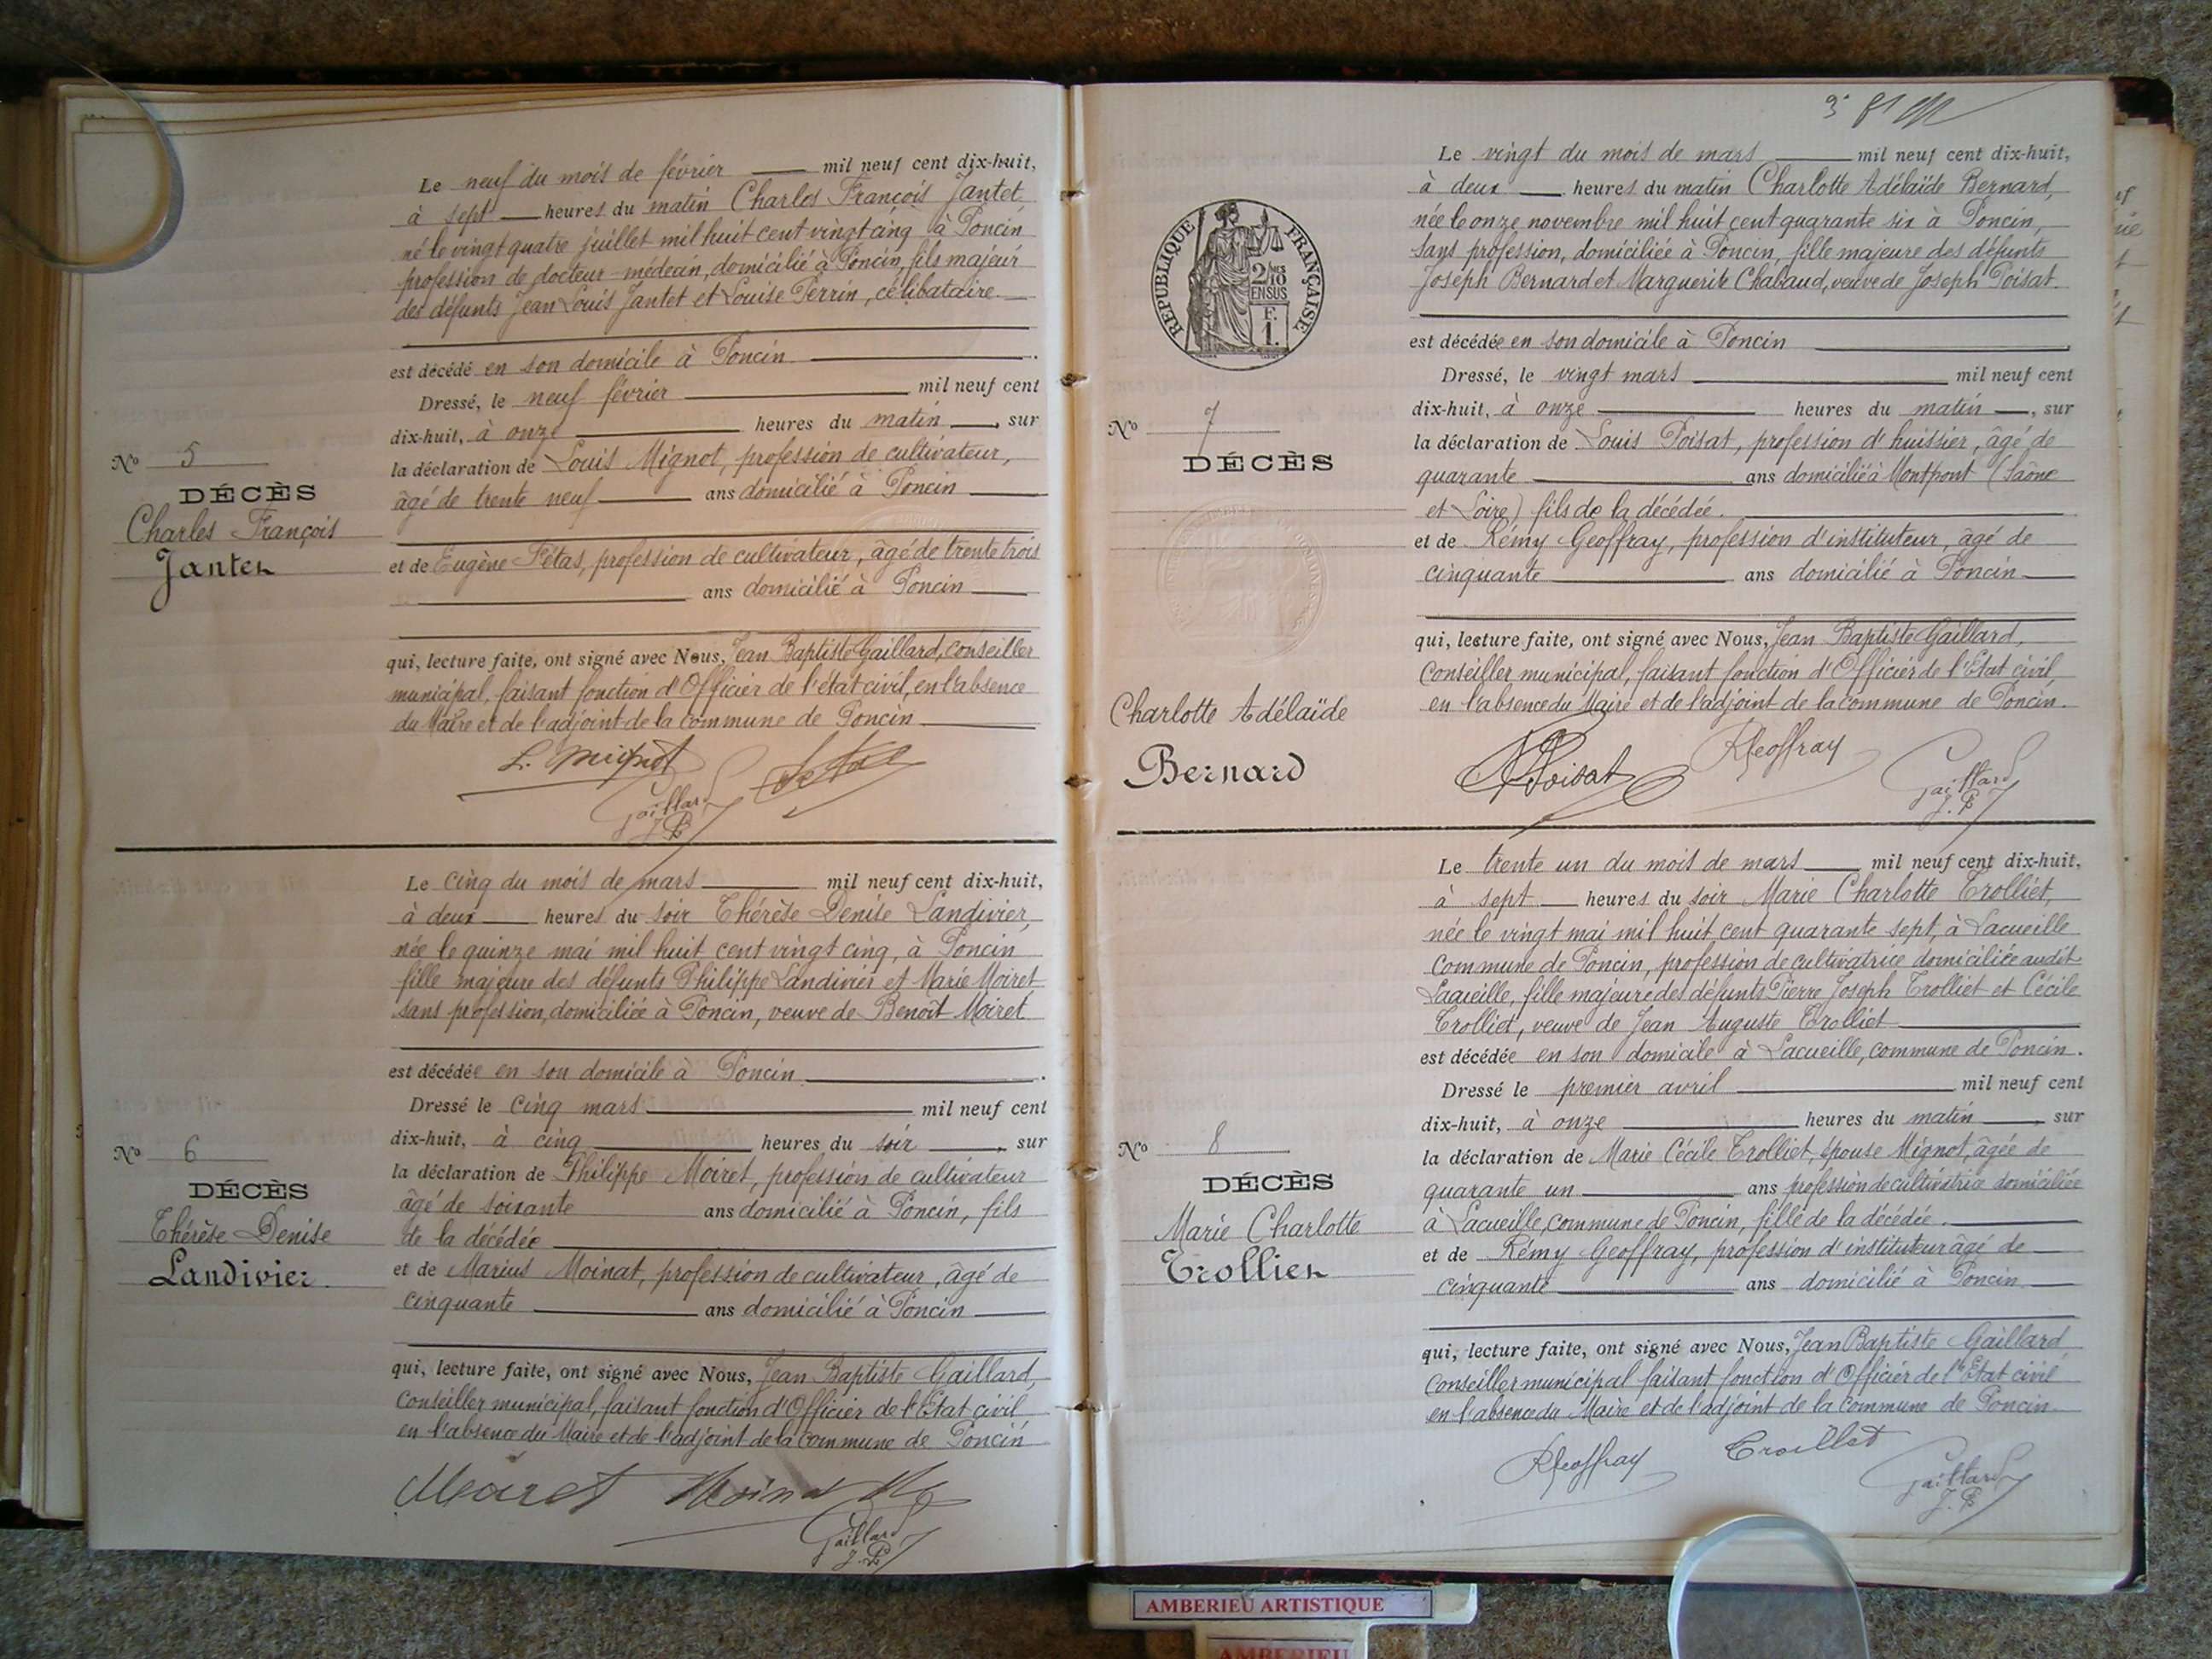 Le neuf du mois de février mil neuf cent dix-huit,
à sept heures du matin Charles François Jantet
né le vingt quatre juillet mil huit cent vingt cinq à Poncin
profession de docteur-médecin, domicilié à Poncin, fils majeur
des défunts Jean Louis Jantet et Louise Perrin, célibataire.
est décédé en son domicile à Poncin.
Dressé, le neuf février mil neuf cent
dix-huit, à onze heures du matin, sur
la déclaration de Louis Mignot, profession de cultivateur,
âgé de trente neuf ans domicilié à Poncin
et de Eugène Fétas, profession de cultivateur, âgé de trente trois
ans domicilié à Poncin
qui, lecture faite, ont signé avec Nous, Jean Baptiste Gaillard, conseiller
municipal, faisant fonction d'Officier de l'état civil, en l'absence
du Maire et de l'adjoint de la commune de Poncin
L. Mignot
Gaillard
J.B
No 5
DÉCÈS
Charles François
Jantet
Le cinq du mois de mars mil neuf cent dix-huit,
à deux heures du soir Thérèse Denise Landivier,
née le quinze mai mil huit cent vingt cinq, à Poncin
fille majeure des défunts Philippe Landivier et Marie Moiret
sans profession, domiciliée à Poncin, veuve de Benoît Moiret
est décédée en son domicile à Poncin.
Dressé le cinq mars mil neuf cent
dix-huit, à cinq heures du soir, sur
la déclaration de Philippe Moiret, profession de cultivateur
âgé de soixante ans domicilié à Poncin, fils
de la décédée
et de Marius Moinat, profession de cultivateur, âgé de
cinquante ans domicilié à Poncin
qui, lecture faite, ont signé avec Nous, Jean Baptiste Gaillard,
Conseiller municipal, faisant fonction d'Officier de l'Etat civil
en l'absence du Maire et de l'adjoint de la commune de Poncin
Moiret Moinat
Gaillard
J.B
No 6
DÉCÈS
Thérèse Denise
Landivier.
Le vingt du mois de mars mil neuf cent dix-huit,
à deux heures du matin Charlotte Adélaïde Bernard,
née le onze novembre mil huit cent quarante six à Poncin,
sans profession, domiciliée à Poncin, fille majeure des défunts
Joseph Bernard et Marguerite Chabaud, veuve de Joseph Poisat
est décédée en son domicile à Poncin.
Dressé, le vingt mars mil neuf cent
dix-huit, à onze heures du matin, sur
la déclaration de Louis Poisat, profession d'huissier, âgé de
quarante ans domicilié à Montpont (Saône
et Loire) fils de la décédée.
et de Rémy Geoffray, profession d'instituteur, âgé de
cinquante ans domicilié à Poncin
qui, lecture faite, ont signé avec Nous, Jean Baptiste Gaillard,
Conseiller municipal, faisant fonction d'Officier de l'Etat civil
en l'absence du Maire et de l'adjoint de la commune de Poncin.
Poisat RGeoffray Gaillard
J.B
RÉPUBLIQUE FRANÇAISE
2/10
EN SUS
F.
1.
No 7
DÉCÈS
Charlotte Adélaïde
Bernard
Le trente un du mois de mars mil neuf cent dix-huit,
à sept heures du soir Marie Charlotte Trolliet,
née le vingt mai mil huit cent quarante sept, à Lacueille
commune de Poncin, profession de cultivatrice domiciliée audit
Lacueille, fille majeure des défunts Pierre Joseph Trolliet et Cécile
Trolliet, veuve de Jean Auguste Trolliet
est décédée en son domicile à Lacueille, commune de Poncin.
Dressé le premier avril mil neuf cent
dix-huit, à onze heures du matin sur
la déclaration de Marie Cécile Trolliet, épouse Mignot, âgée de
quarante un ans profession de cultivatrice domiciliée
à Lacueille, commune de Poncin, fille de la décédée.
et de Rémy Geoffray, profession d'instituteur âgé de
cinquante ans domicilié à Poncin
qui, lecture faite, ont signé avec Nous, Jean Baptiste Gaillard
Conseiller municipal faisant fonction d'Officier de l'Etat civil
en l'absence du Maire et de l'adjoint de la commune de Poncin
RGeoffray Trolliet Gaillard
J.B
No 8
DÉCÈS
Marie Charlotte
Trolliet
AMBERIEU ARTISTIQUE
AMBERIEU